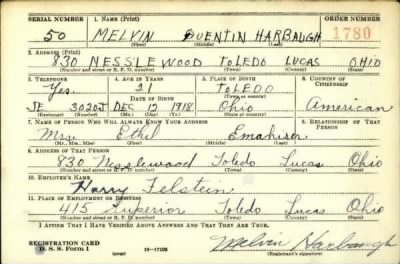 SERIAL NUMBER 1. NAME (Print) ORDER NUMBER
50 MELVIN QUENTIN HARBAUGH 1780
(First) (Middle) (Last)
2. ADDRESS (Print)
830 NESSLEWOOD TOLEDO LUCAS OHIO
(Number and street or R. F. D. number) (Town) (County) (State)
3. TELEPHONE 4. AGE IN YEARS 5. PLACE OF BIRTH 6. COUNTRY OF CITIZENSHIP
Yes. 21 TOLEDO
DATE OF BIRTH (Town or county)
JE. 3020J DEC 12 1918 Ohio American
(Exchange) (Number) (Mo.) (Day) (Yr.) (State or country)
7. NAME OF PERSON WHO WILL ALWAYS KNOW YOUR ADDRESS 8. RELATIONSHIP OF THAT PERSON
Mrs. Ethel Emahiser
(Mr., Mrs., Miss) (First) (Middle) (Last)
9. ADDRESS OF THAT PERSON
830 Nesslewood Toledo Lucas Ohio
(Number and street or R. F. D. number) (Town) (County) (State)
10. EMPLOYER'S NAME
Harry Felstein
11. PLACE OF EMPLOYMENT OR BUSINESS
415 Superior Toledo Lucas Ohio
(Number and street or R. F. D. number) (Town) (County) (State)
I AFFIRM THAT I HAVE VERIFIED ABOVE ANSWERS AND THAT THEY ARE TRUE.
REGISTRATION CARD
D. S. S. Form 1 16—17105 Melvin Harbaugh
(Registrant's signature)